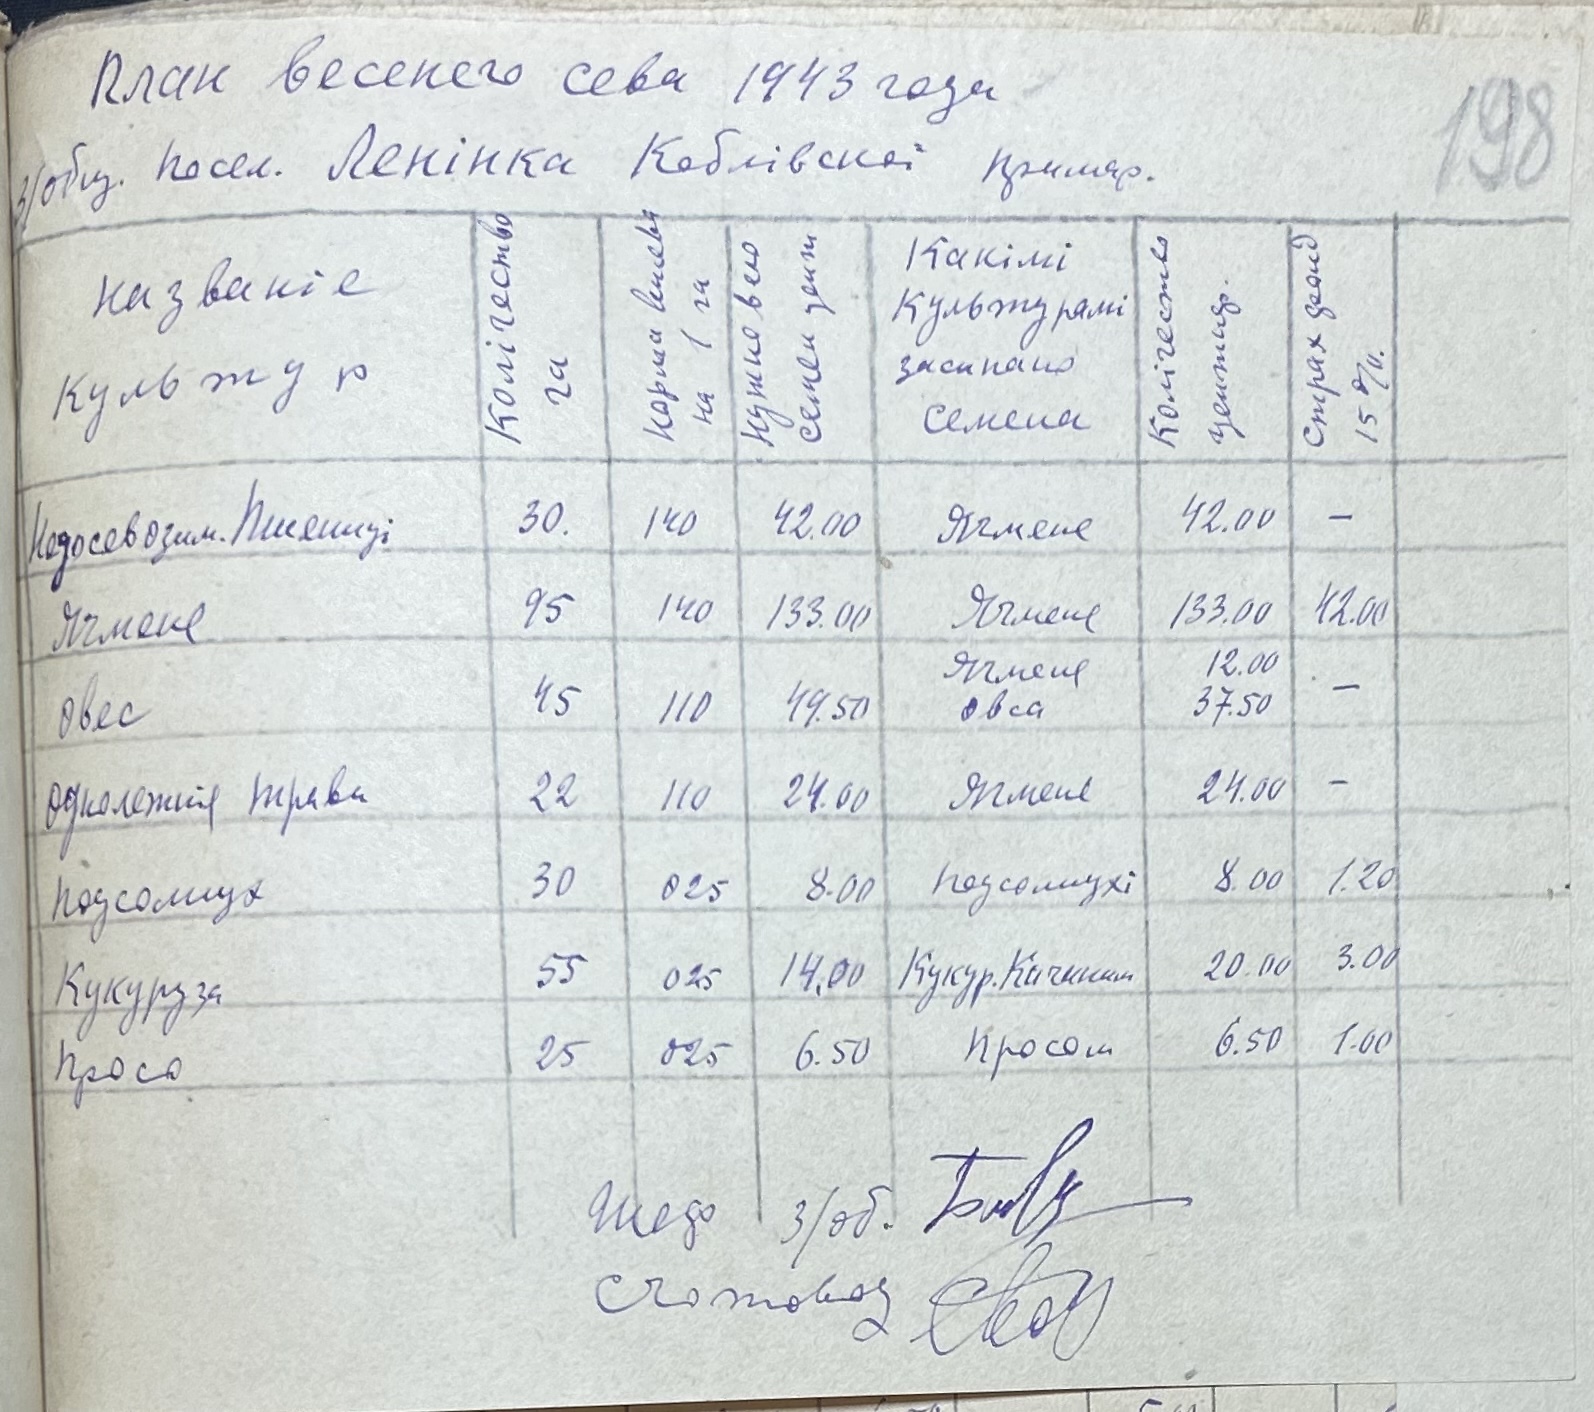 План весенего сева 1943 года
198
з/общ. посел. Ленінка Коблівскоі примар.
Названіе культур | Колічество га | Норма висева на 1 га | Нужно всего семен цент | Какімі культурамі засипано семена | Колічество центнер. | Страх фонд 15 %.
Недосев озим. Пшениці | 30. | 140 | 42.00 | Ячмене | 42.00 | —
Ячмене | 95 | 140 | 133.00 | Ячмене | 133.00 | 42.00
Овес | 45 | 110 | 49.50 | Ячмене 12.00 | —
овса 37.50
Однолетния трави | 22 | 110 | 24.00 | Ячмене | 24.00 | -
Подсолнух | 30 | 025 | 8.00 | Подсолнухі | 8.00 | 1.20
Кукуруза | 55 | 025 | 14.00 | Кукур. Качанам | 20.00 | 3.00
Просо | 25 | 025 | 6.50 | Просом | 6.50 | 1.00
Шеф з/об.
Счотовод